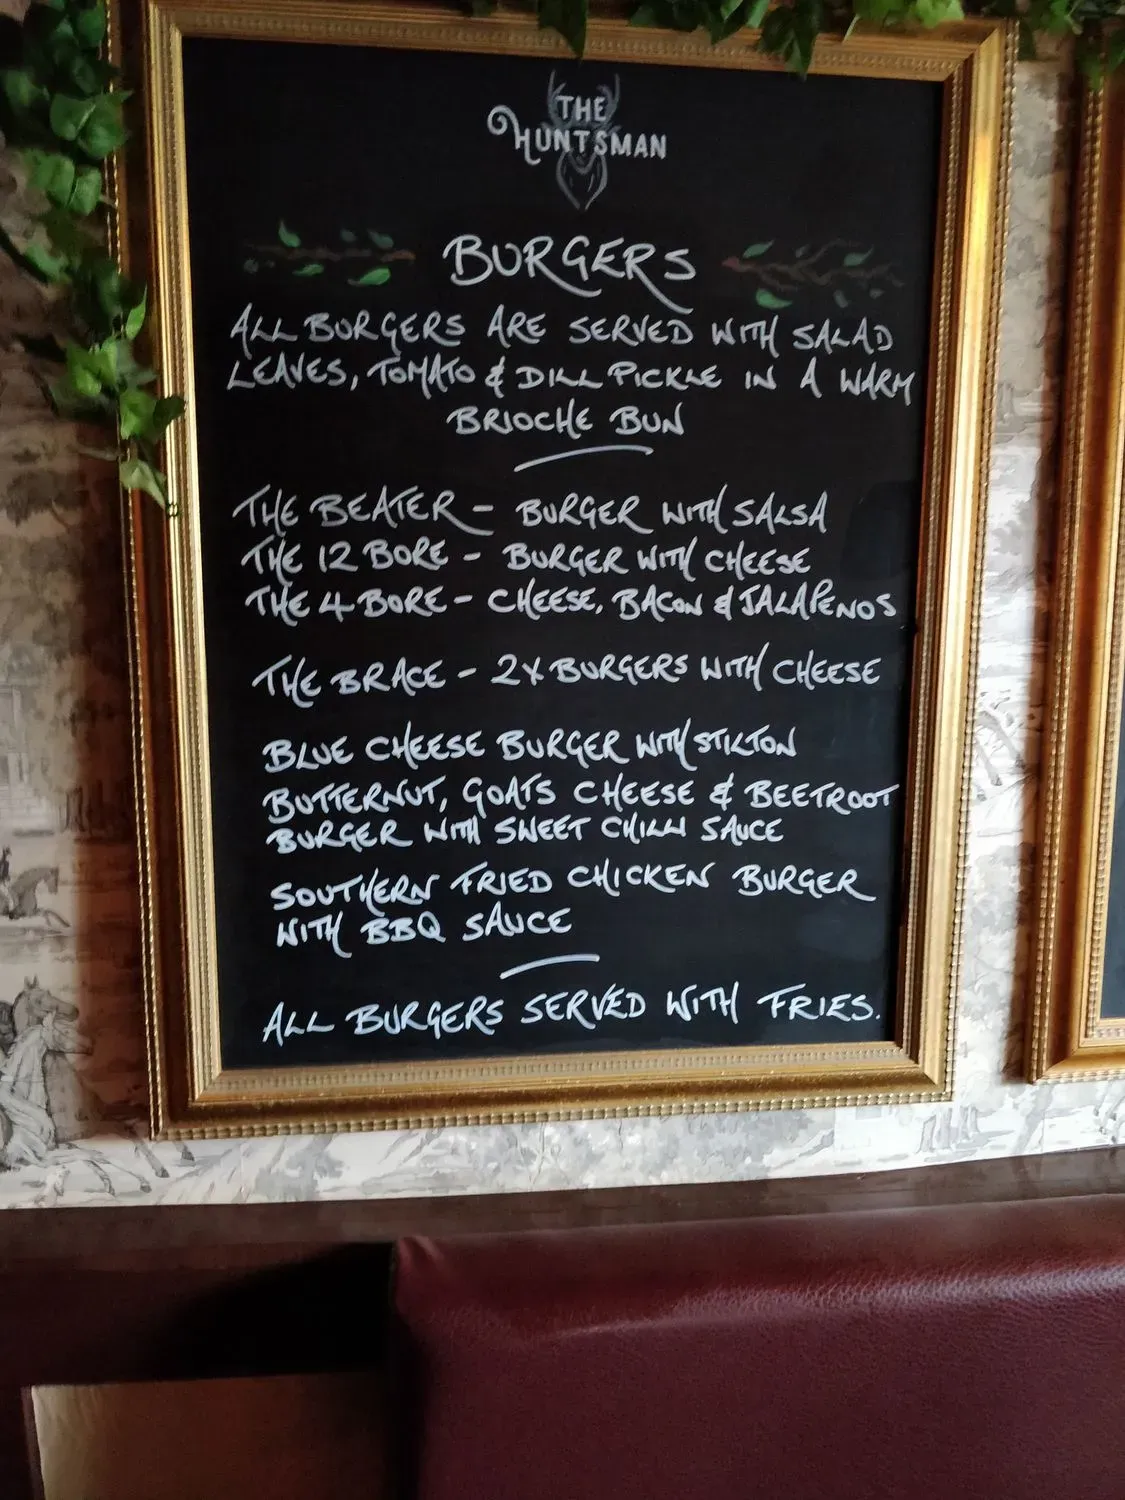 THE
HUNTSMAN
BURGERS
ALL BURGERS ARE SERVED WITH SALAD
LEAVES, TOMATO & DILL PICKLE IN A WARM
BRIOCHE BUN
THE BEATER - BURGER WITH SALSA
THE 12 BORE - BURGER WITH CHEESE
THE 4 BORE - CHEESE, BACON & JALAPENOS
THE BRACE - 2X BURGERS WITH CHEESE
BLUE CHEESE BURGER WITH STILTON
BUTTERNUT, GOATS CHEESE & BEETROOT
BURGER WITH SWEET CHILLI SAUCE
SOUTHERN FRIED CHICKEN BURGER
WITH BBQ SAUCE
ALL BURGERS SERVED WITH FRIES.